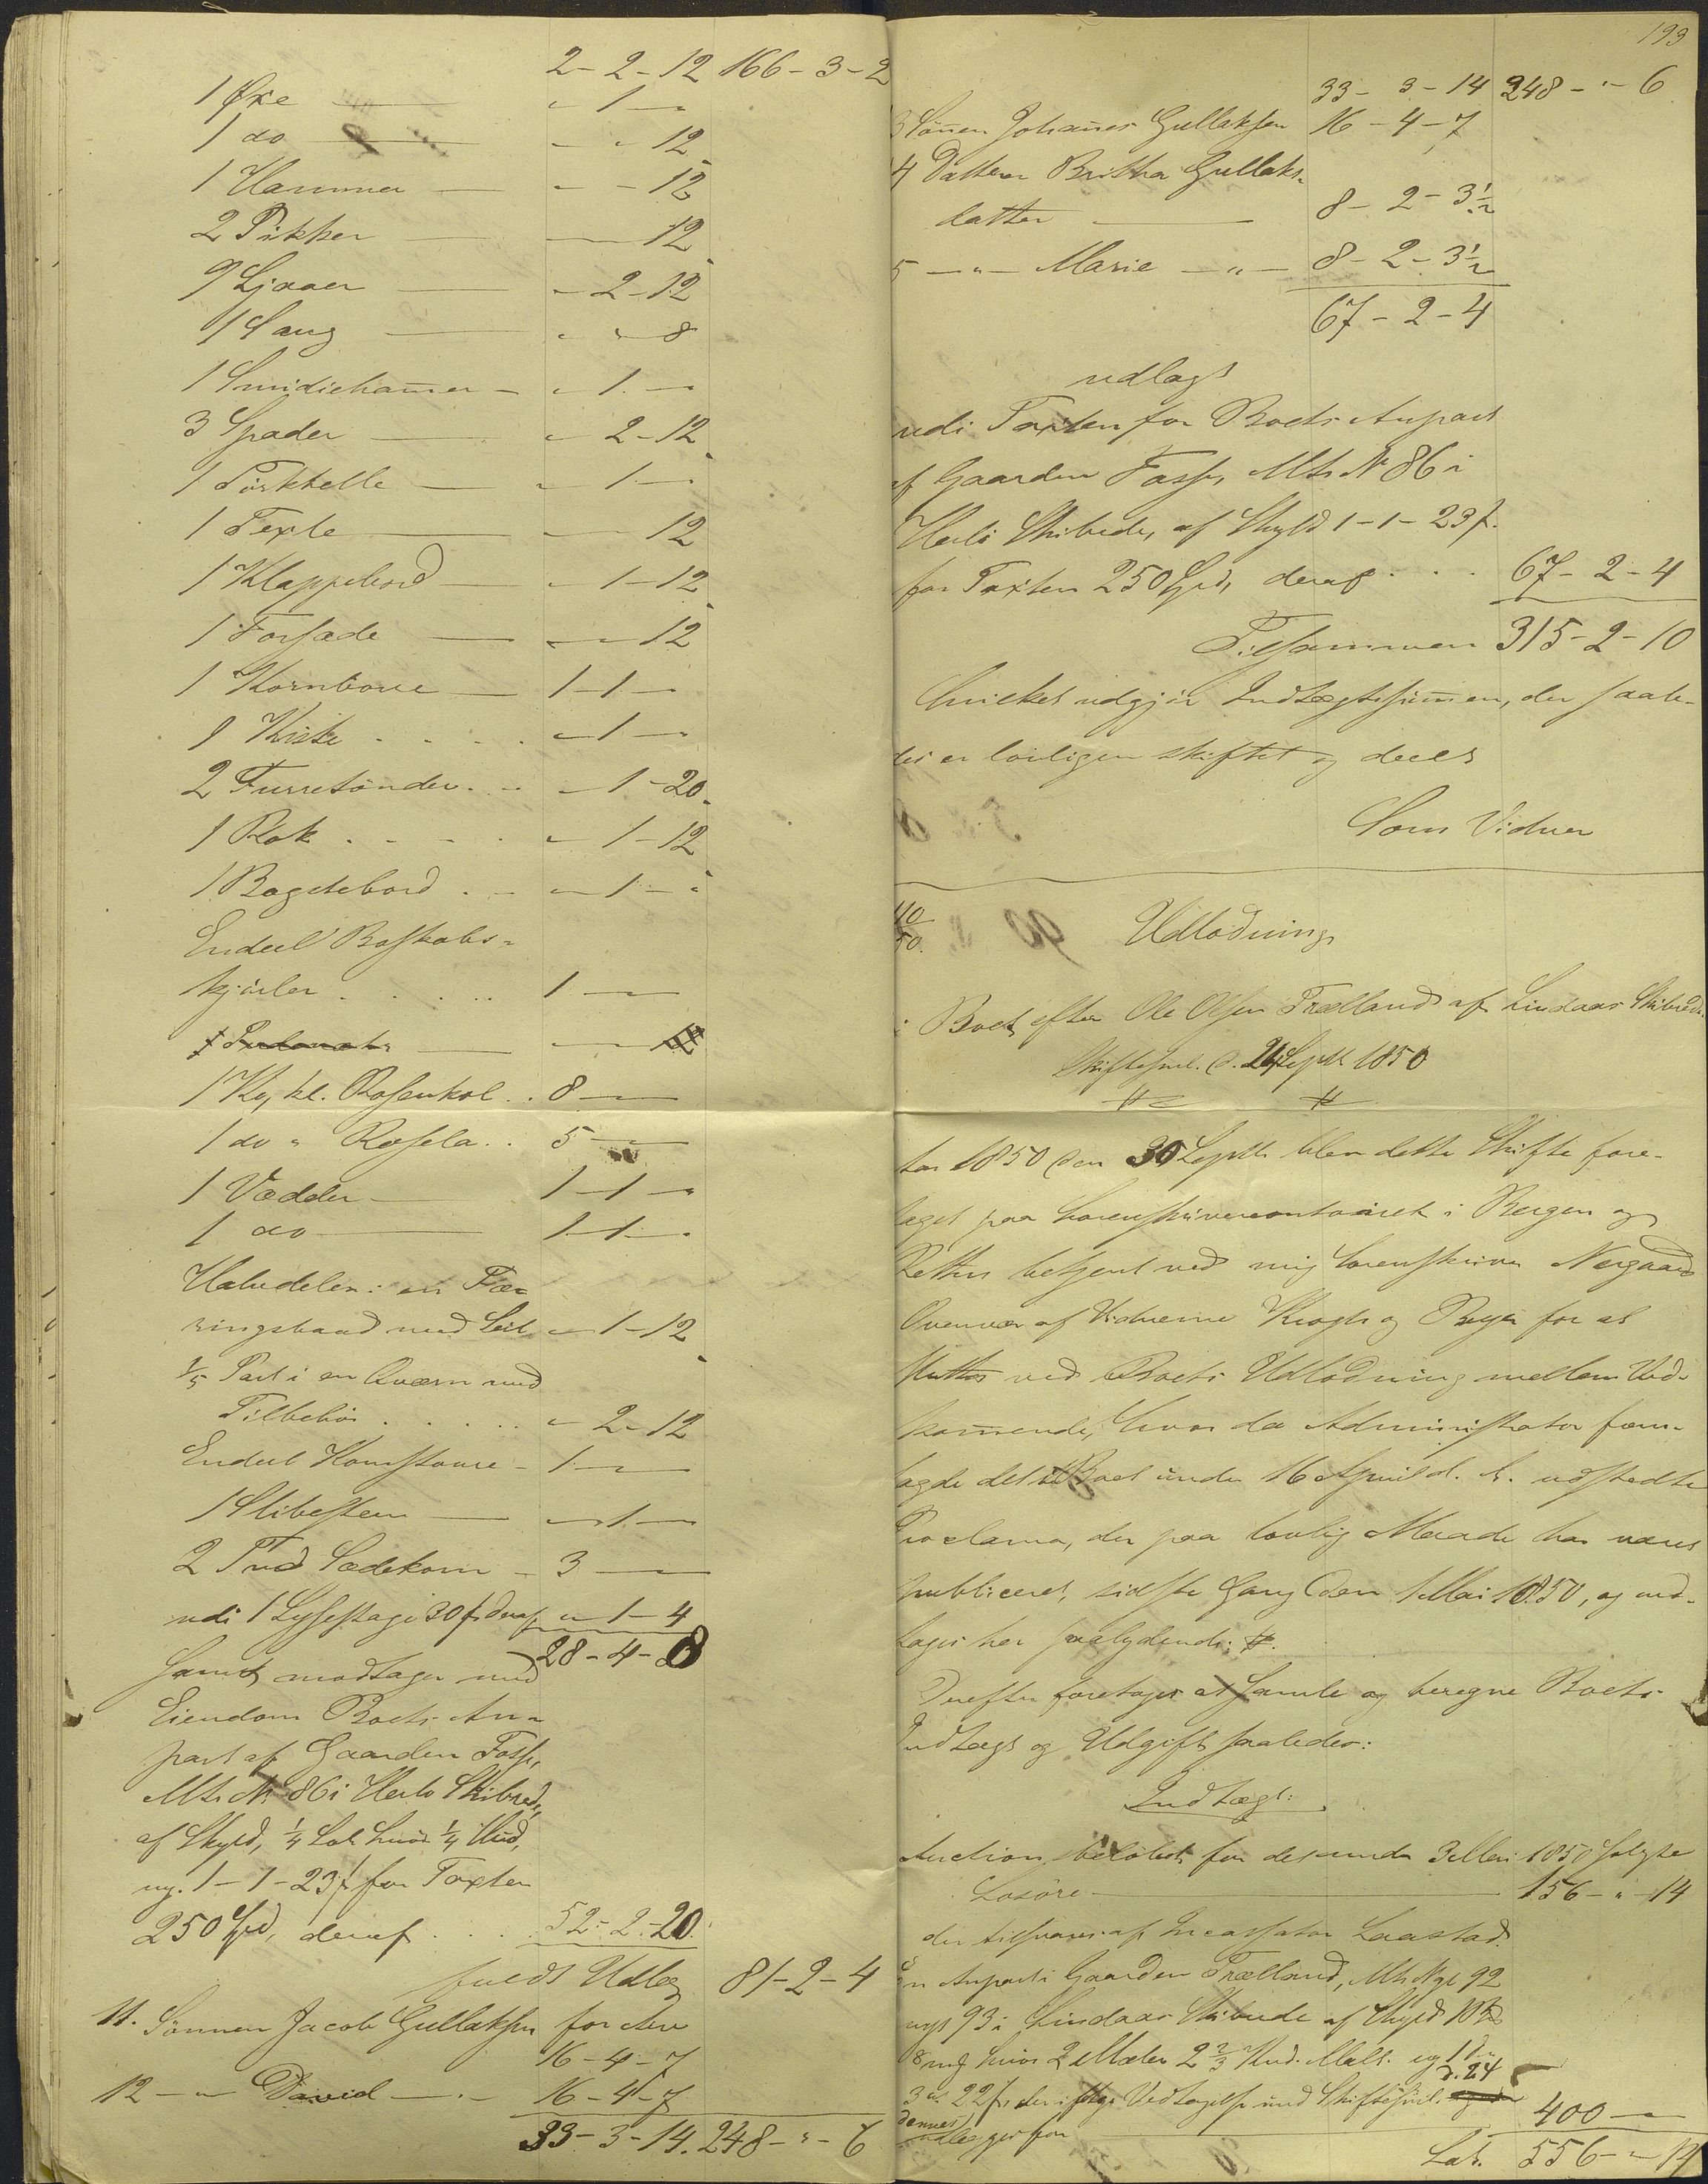 2 - 2 - 12 166 - 3 - 2
1 Øxe — " 1 —
1 do — - " 12
1 Hammer — - - 12
2 Pikker — — 12
9 Ljaaer — - 2 - 12
1 Saug — " " 8
1 Smidiehamer - " 1 —
3 Spader — " 2 - 12
1 — " 1 —
1 Texle — — 12
1 Klappebord — - 1 - 12
1 Forsæde — — 12
1 Kornbøre — 1 - 1 -
1 Kiste . . . . - 1 —
2 Furretønder . - - 1 - 20
1 Rok . - - . - 1 - 12
1 Bagstebord . - - 1 - "
Endeel Boskabs-
kjørler . . . . . 1 —
1 Ko, kl. Rosenkol . . 8 —
1 do " Rosela . . 5 —
1 Vædder — 1 - 1 -
1 do — 1 - 1 -
Halvdelen i en Fæ-
ringsbaad med Seil - 1 - 12
1/5 Part i en Qværn med
Tilbehør . . . . . " 2 - 12
Endeel Kornstaure - 1 —
1 Slibesteen — - 1 —
2 Tnd Sædekorn - 3 —
udi 1 Lysestage 30 ß deraf " 1 - 4
28 - 4 - 8
samt modtager med
Eiendom Boets An-
part af Gaarden Fosse,
Mtr. Nr. 86 i Herlø Skibrede,
af Skyld, 1/4 Løb Smør 1/4 Hud,
ny. 1 - 1 - 23 ß for Taxten
250 Spd, deraf . . . 52 - 2 - 20
fuldt Udlæg 81 - 2 - 4
11. Sønnen Jacob Gullaksen for Arv
16 - 4 - 7
12 - " - David - " - 16 - 4 - 7
33 - 3 - 14. 248 - " - 6
193
33 - 3 - 14 248 - " - 6
3 Sønnen Johanes Gullaksen 16 - 4 - 7
4 Datteren Britha Gullaks-
datter — 8 - 2 - 3 1/2
5 - " - Marie - " - 8 - 2 - 3 1/2
67 - 2 - 4
udlagt
udi Taxten for Boets Anpart
af Gaarden Fosse, Mtr. Nr 86 i
Herlø Skibrede, af Skyld 1 - 1 - 23 ß.
for Taxten 250 Spd, deraf . . . 67 - 2 - 4
Tilsammen 315 - 2 - 10
hvilket udgjør Indtægtssumen, der saale-
des er lovligen skiftet og deelt
Som Vidner
10/50.
Udlodning
i Boet efter Ole Olsen Trælland af Lindaas Skibrede.
Skiftesml. d. 24 Septbr 1850
Aar 1850 den 30 Septbr. blev dette Skifte fore-
taget paa Sorenskrivercontoiret i Bergen og
Retten betjent ved mig Sorenskriver Nergaard
Overvær af Vidnerne Krogh og Beyer for at
sluttes ved Boets Udlodning mellem Ved-
komende, hvor da Administrator frem-
lagde det til Boet under 16 April d. A. udstedte
Proclama, der paa lovlig Maade har været
publiceret, sidste Gang den 1 Mai 1850, og ind-
tages her saalydende: #.
Derefter foretages at samle og beregne Boets
Indtægt og Udgift saaledes:
Indtægt:
Auctionsbeløbet for det under 3 Mai 1850 solgte
Løsøre — 156 - " - 14
der tilsvares af Incassator Laastad.
En Anpart i Gaarden Trælland, Mtr. Ngt 92
ngt 93 i Lindaas Skibrede af Skyld
8 mk Smør 2 Mæler 2 2/3 Knd. Malt. ny 1 D.
3 ort 22 ß, der ifølge Vedtagelse under Skiftesml. d. 24
dennes
udlægges for — 400 —
Lat. 556 - " - 14